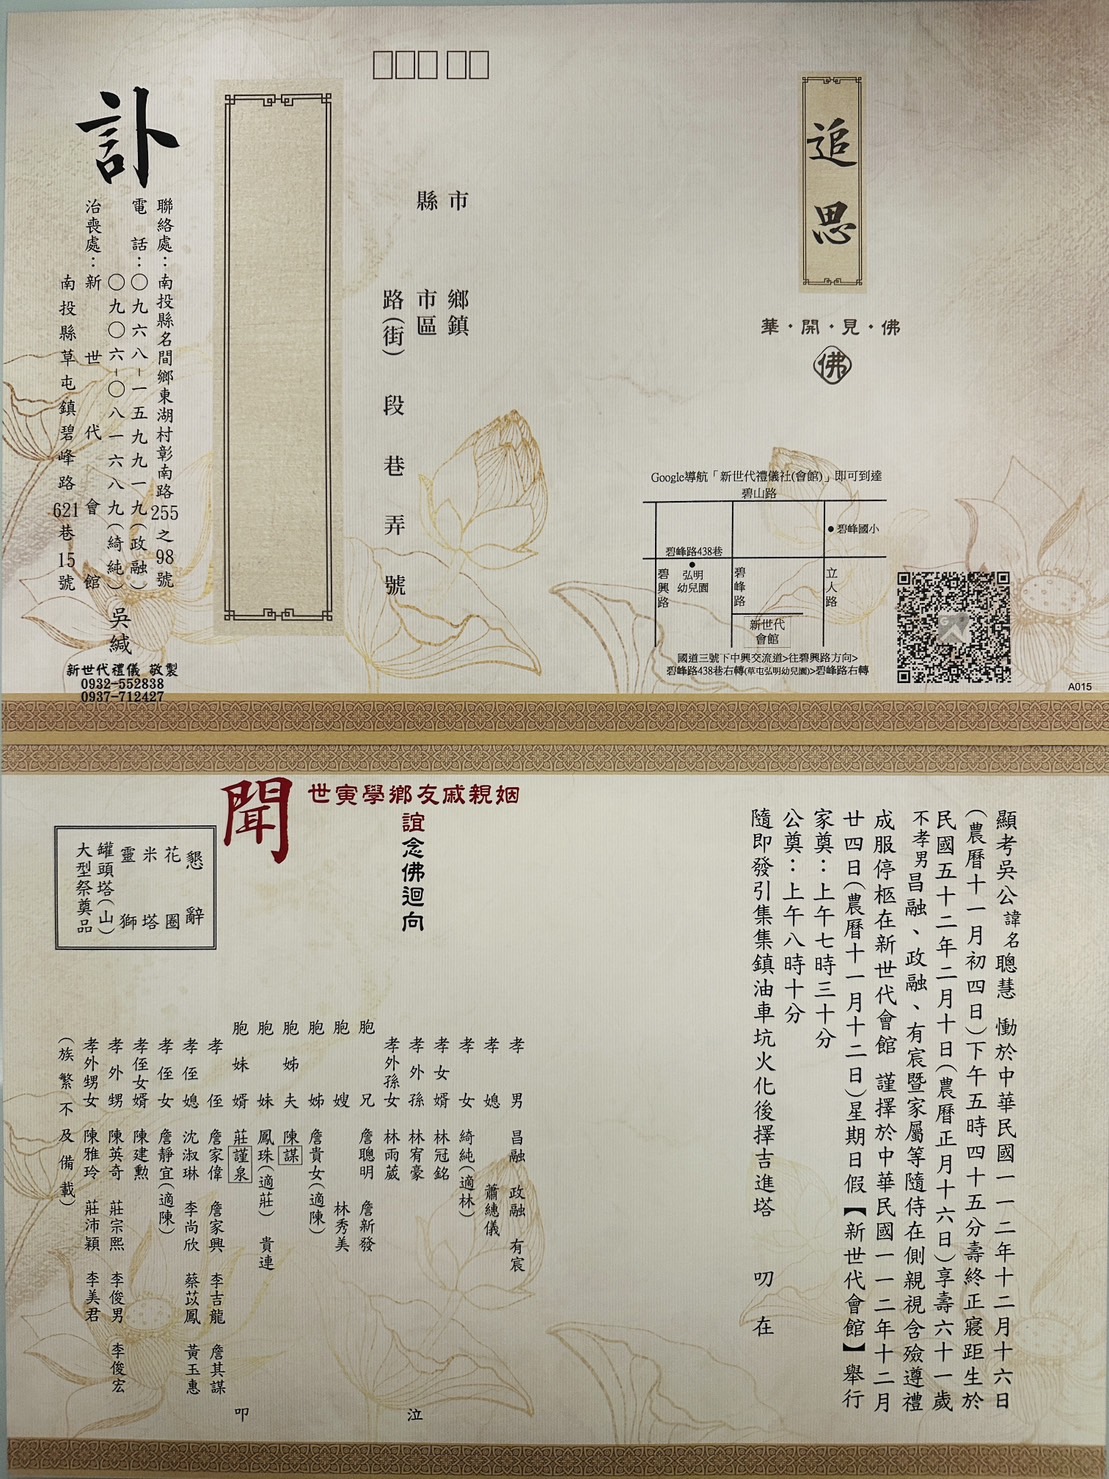 追思
華·開·見·佛
佛
Google導航「新世代禮儀社(會館)」即可到達
碧山路
碧峰國小
碧峰路438巷
碧興路
弘明幼兒園
碧峰路
立人路
新世代會館
國道三號下中興交流道>往碧興路方向>
碧峰路438巷右轉(草屯弘明幼兒園)>碧峰路右轉
A015
市 鄉鎮
縣 市區
路(街) 段 巷 弄 號
訃
聯絡處：南投縣名間鄉東湖村彰南路255之98號
電話：〇九六八-一五九九一九(政融)
〇九〇六-〇八一六八九(綺純)
吳緘
治喪處：新世代會館
南投縣草屯鎮碧峰路621巷15號
新世代禮儀 敬製
0932-552838
0937-712427
顯考吳公諱名聰慧 慟於中華民國一一二年十二月十六日
(農曆十一月初四日)下午五時四十五分壽終正寢距生於
民國五十二年二月十日(農曆正月十六日)享壽六十一歲
不孝男昌融、政融、有宸暨家屬等隨侍在側親視含殮遵禮
成服停柩在新世代會館 謹擇於中華民國一一二年十二月
廿四日(農曆十一月十二日)星期日假【新世代會館】舉行
家奠：上午七時三十分
公奠：上午八時十分
隨即發引集集鎮油車坑火化後擇吉進塔 叨 在
世寅學鄉友戚親姻
誼念佛迴向
聞
懇辭
花圈
米塔
靈獅
罐頭塔(山)
大型祭奠品
孝男 昌融 政融 有宸
孝媳 蕭總儀
孝女 綺純(適林)
孝女婿 林冠銘
孝外孫 林宥豪
孝外孫女 林雨葳
泣
胞兄 詹聰明 詹新發
胞嫂 林秀美
胞姊 詹貴女(適陳)
胞姊夫 陳謀
胞妹 鳳珠(適莊) 貴連
胞妹婿 莊謹泉
孝侄 詹家偉 詹家興 李吉龍 詹其謀
孝侄媳 沈淑琳 李尚欣 蔡苡鳳 黃玉惠
孝侄女 詹靜宜(適陳)
孝侄女婿 陳建勲
孝外甥 陳英奇 莊宗熙 李俊男 李俊宏
孝外甥女 陳雅玲 莊沛穎 李美君
(族繁不及備載)
叩